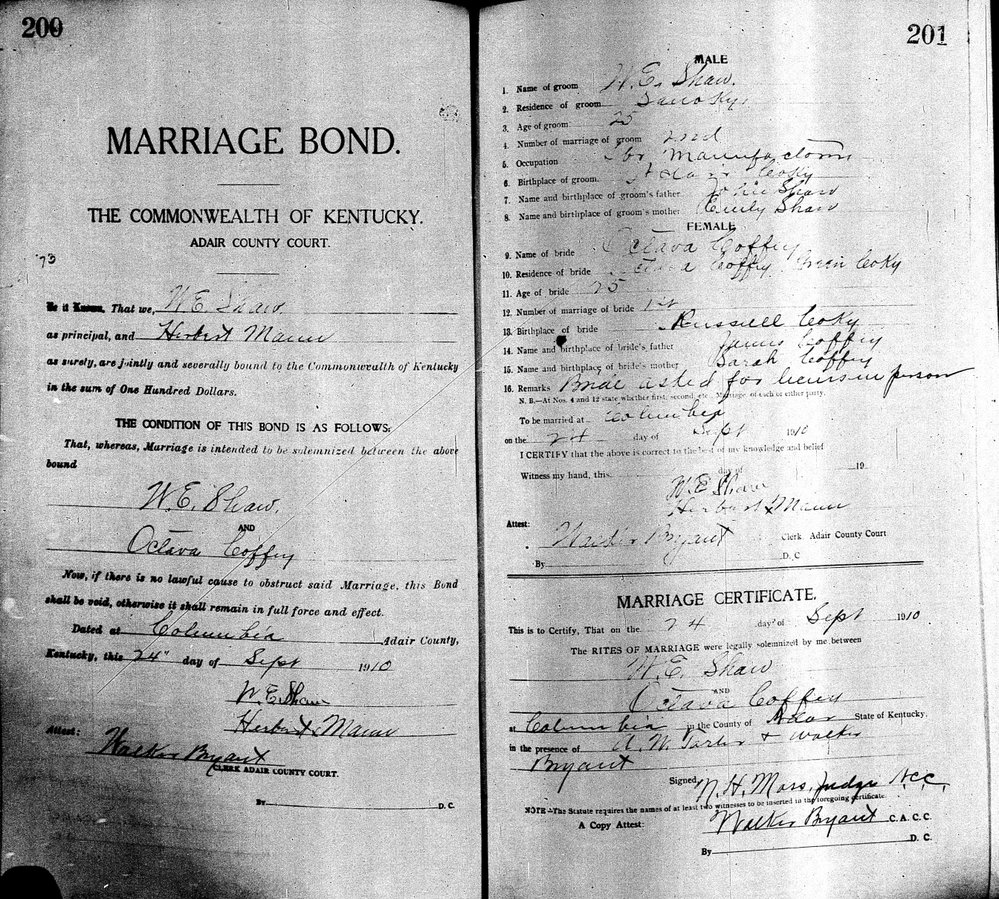 200
MARRIAGE BOND.
THE COMMONWEALTH OF KENTUCKY.
ADAIR COUNTY COURT.
'73
Be it Known, That we, W. E. Shaw.
as principal, and Herbert Mann
as surety, are jointly and severally bound to the Commonwealth of Kentucky
in the sum of One Hundred Dollars.
THE CONDITION OF THIS BOND IS AS FOLLOWS:
That, whereas, Marriage is intended to be solemnized between the above
bound
W. E. Shaw,
AND
Octava Coffey
Now, if there is no lawful cause to obstruct said Marriage, this Bond
shall be void, otherwise it shall remain in full force and effect.
Dated at Columbia Adair County,
Kentucky, this 24" day of Sept 1910
W. E. Shaw
Herbert Mann
Attest: Walker Bryant
CLERK ADAIR COUNTY COURT.
By D. C.
201
MALE
1. Name of groom W. E. Shaw.
2. Residence of groom
3. Age of groom 25
4. Number of marriage of groom 2nd
5. Occupation Manufactory
6. Birthplace of groom. Adair Co Ky
7. Name and birthplace of groom's father John Shaw
8. Name and birthplace of groom's mother Emily Shaw
FEMALE
9. Name of bride Octava Coffey
10. Residence of bride Octava Coffey Green Co Ky
11. Age of bride 25
12. Number of marriage of bride 1st
13. Birthplace of bride Russell Co Ky
14. Name and birthplace of bride's father James Coffey
15. Name and birthplace of bride's mother Sarah Coffey
16. Remarks Bride asked for license in person
N. B.—At Nos. 4 and 12 state whether first, second, etc., Marriage of each or either party.
To be married at Columbia
on the 24 day of Sept 1910
I CERTIFY that the above is correct to the best of my knowledge and belief
Witness my hand, this day of 19
W. E. Shaw
Herbert Mann
Attest:
Walker Bryant Clerk Adair County Court
By D. C
MARRIAGE CERTIFICATE.
This is to Certify, That on the 24 day of Sept 1910
The RITES OF MARRIAGE were legally solemnized by me between
W. E. Shaw
AND
Octava Coffey
at Columbia in the County of Adair State of Kentucky,
in the presence of & Walker
Bryant
Signed N. H. Moss, Judge A.C.C.
NOTE—The Statute requires the names of at least two witnesses to be inserted in the foregoing certificate.
A Copy Attest: Walker Bryant C. A. C. C.
By D. C.